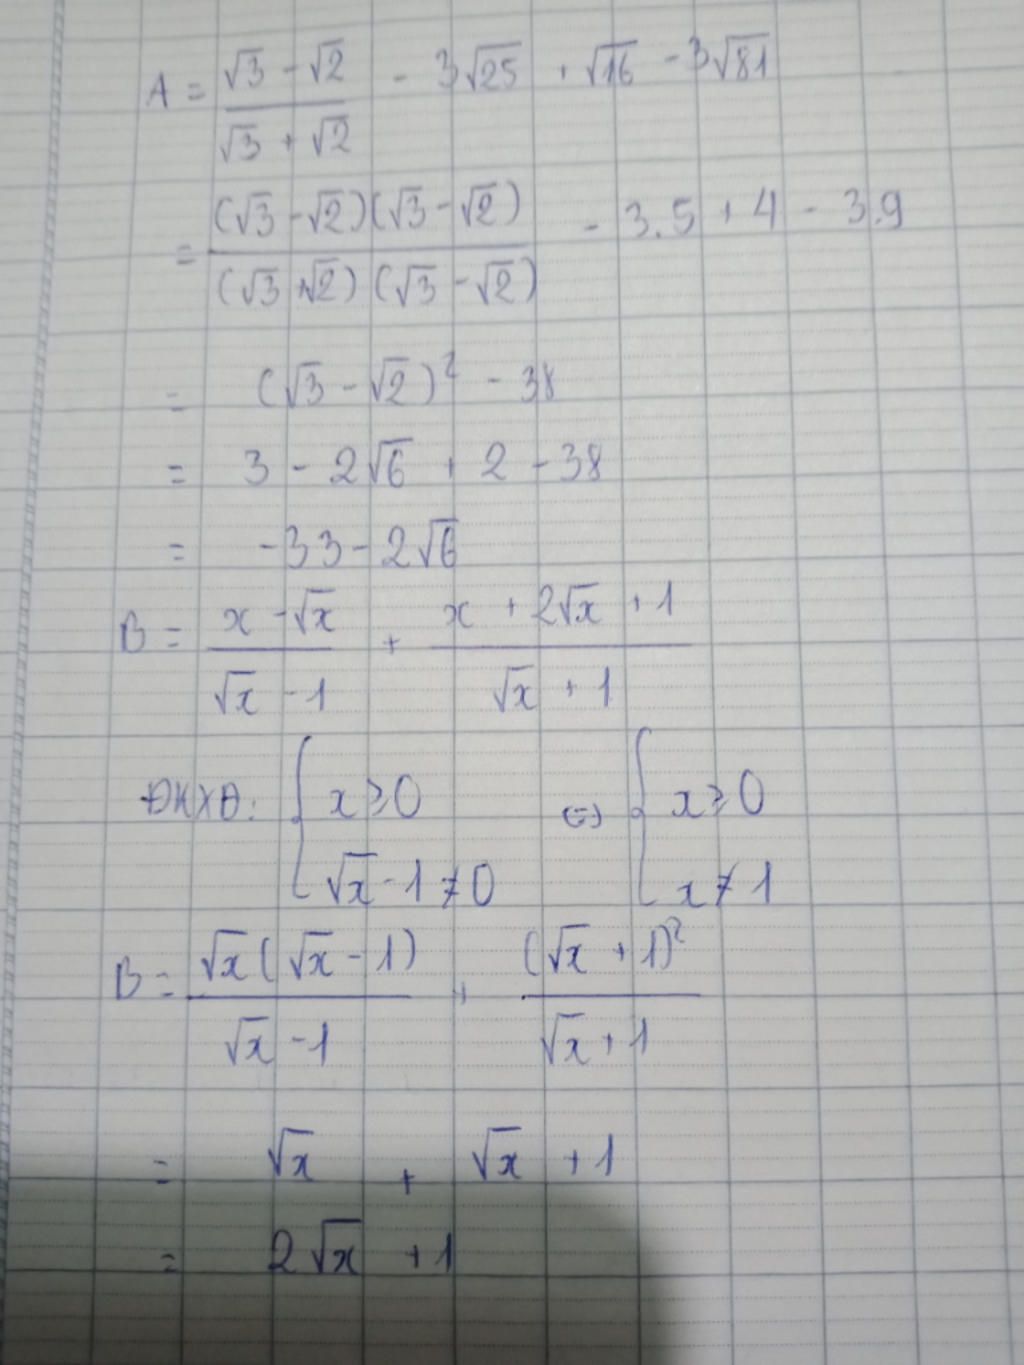 A = (√3 - √2)/(√3 + √2) - 3√25 + √16 - 3√81
= ((√3 - √2)(√3 - √2))/((√3 + √2)(√3 - √2)) - 3.5 + 4 - 3.9
= (√3 - √2)² - 38
= 3 - 2√6 + 2 - 38
= -33 - 2√6
B = (x - √x)/(√x - 1) + (x + 2√x + 1)/(√x + 1)
ĐKXĐ: { x ≥ 0 ⇔ { x ≥ 0
√x - 1 ≠ 0 x ≠ 1
B = (√x(√x - 1))/(√x - 1) + (√x + 1)²/(√x + 1)
= √x + √x + 1
= 2√x + 1